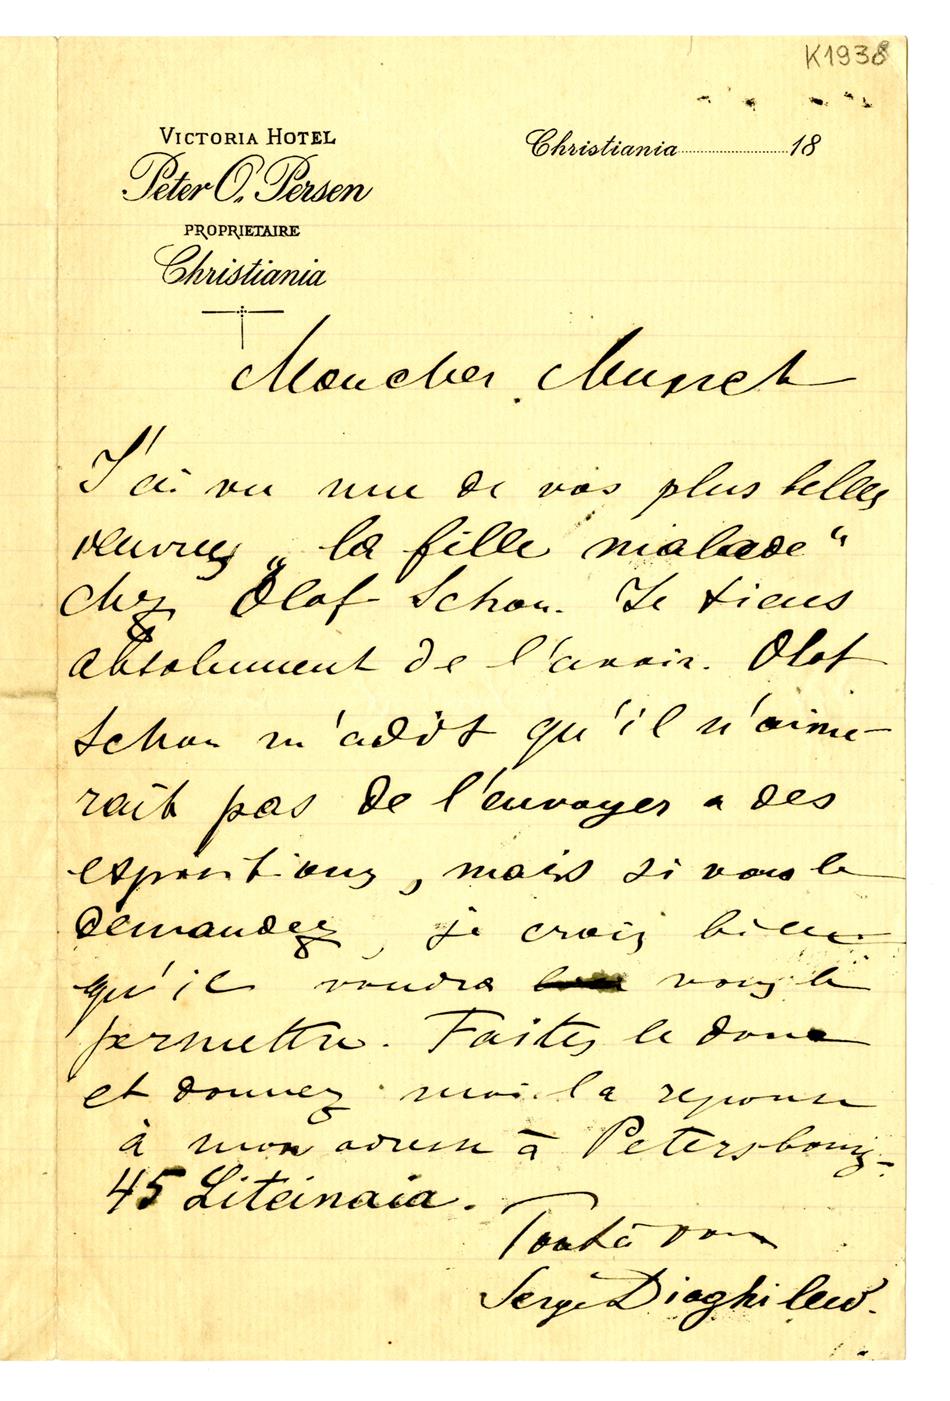 K1938
VICTORIA HOTEL
Peter O. Persen
PROPRIETAIRE
Christiania
Christiania 18
Mon cher Munch
J'ai vu une de vos plus belles
œuvres „la fille malade“
chez Olaf Schou. Je tiens
absolument de l'avoir. Olaf
Schou m'a dit qu'il n'aime-
rait pas de l'envoyer a des
expositions, mais si vous le
demandez, je crois bien
qu'il voudra vous le
permettre. Faites le donc
et donnez moi la reponse
à mon adresse à Petersbourg-
45 Liteinaia.
Tout à vous
Serge Diaghilew.